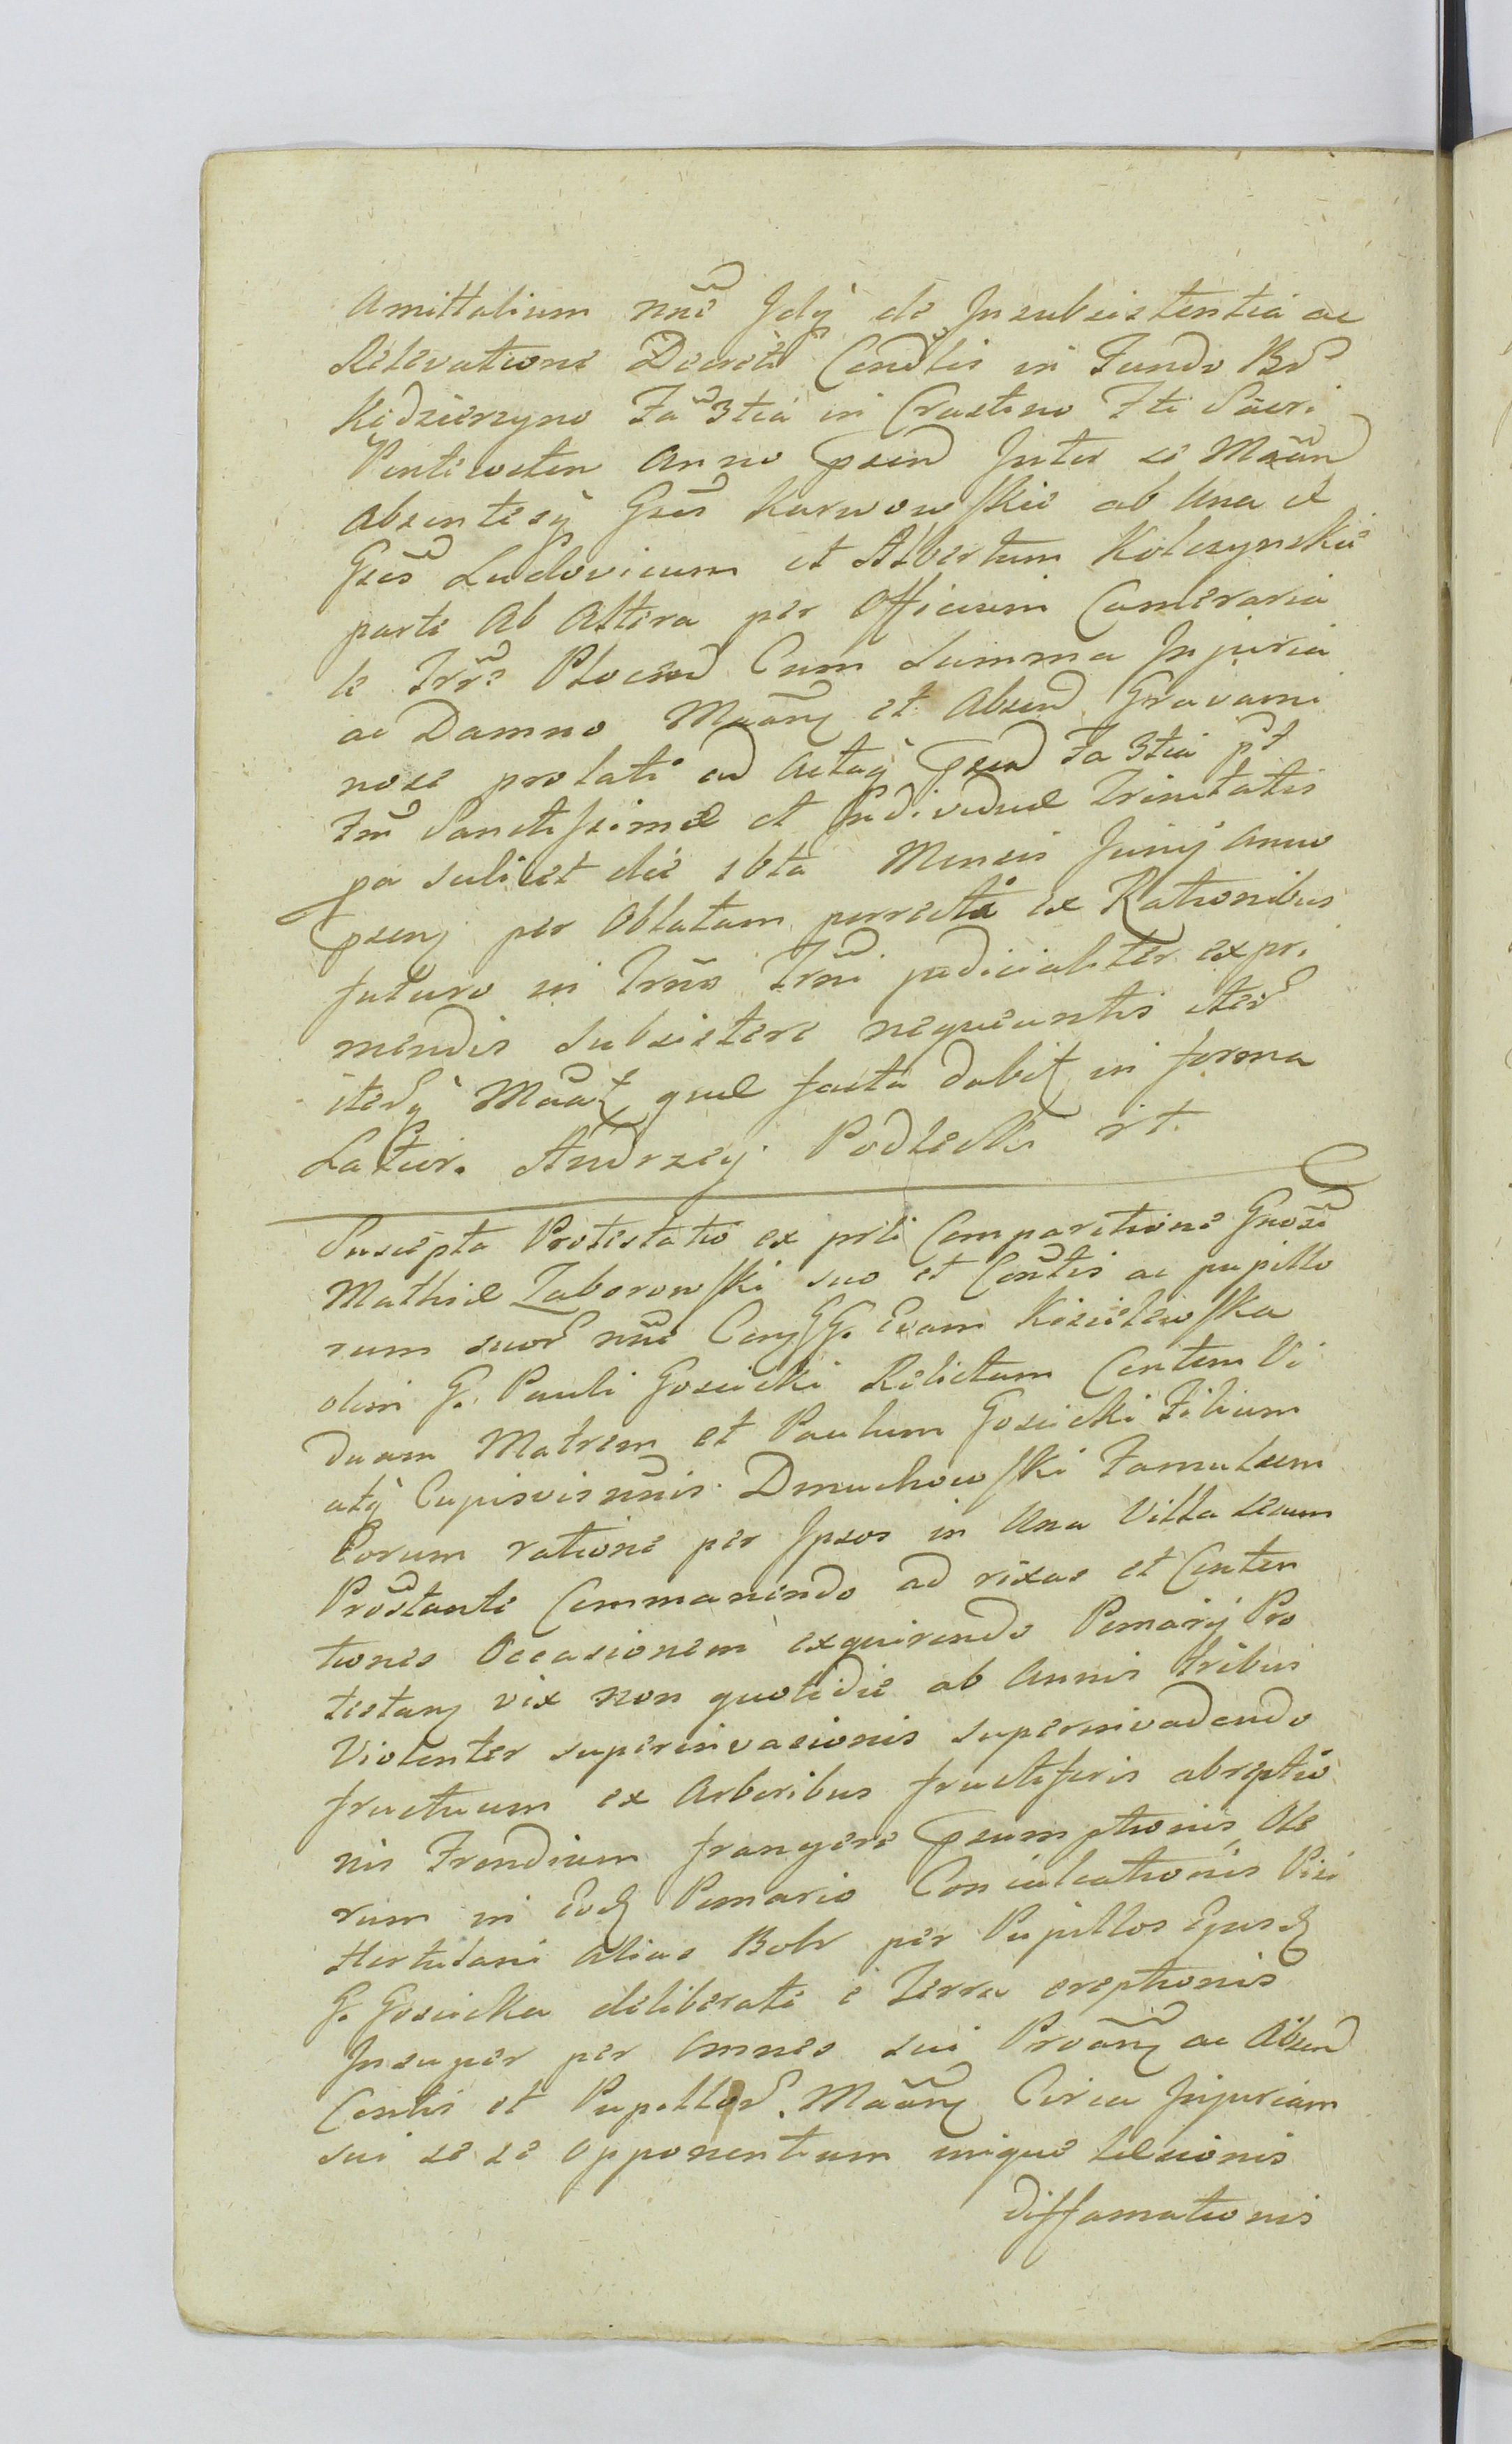 Amittalium nñe Jdq̀ de Insubsistentia ac
Relevatione Decreti Cendlis in Fundo Bd
Kędzierzyno Fa 3tia in Crastino Fti Sacri
Pentecosten Anno pseñd Inter se Mãan
absentesq̀ Gses Karwowskie ab Una et
Gses Ludovicum et Albertum Kolczynskie
parte Ab Altera per Officium Cameraria
le Trrẽ Plocens Cum Summa Injuria
ac Damno Mãany et absend Gravami
nose prolati ad actaq̀ pseñd Fa 3tia pt
Fm̃ Sanctissimæ et Individuæ Trinitatis
pa scilicet die 16ta Mensis Junij Anno
pseny per Oblatam porrecti ex Rationibus
futuro in Trño Trñi judicialiter expri
mendis Subsistere nequeuntis iterd
iterdq̀ Mãaṫ quæ facta dabit in forma
Latior. Andrzey Podlecki rt.
Suscepta Protestatio ex prli Comparitione Gnosi
Mathiæ Zaborowski suo et Contis ac pupillo
rum suor nñe Ceny GG. Evam Kisielewska
olim G. Pauli Gosiicki Relictam Contem Vi
duam Matrem et Paulum Gosiicki Filium
atq̀ Cupisvis nñis Dmuchowski Famulum
Eorum ratione per Ipsos in Una Villa secum
Prostante Commanendo ad rixas et Conten
tiones Occasionem exquirendo Pomarij Pro
testany vix non quotidie ab Annis tribus
Violenter superinvasionis superinvadendo
fructuum ex Arboribus fructiferis abreptio
nis Frondium frangere psumptionis Ole
rum in Eodꝫ Pomario Conculcationis Pisi
Hortulani alias Bobr per Pupillos Ejusdꝫ
G. Gosiicka deliberate e Terra ereptionis
Insuper per Omnes sui Proãny ac Absend
Contis et Pupillor Mãany Circa Injuriam
sui se se opponentium inique læsionis
diffamationis